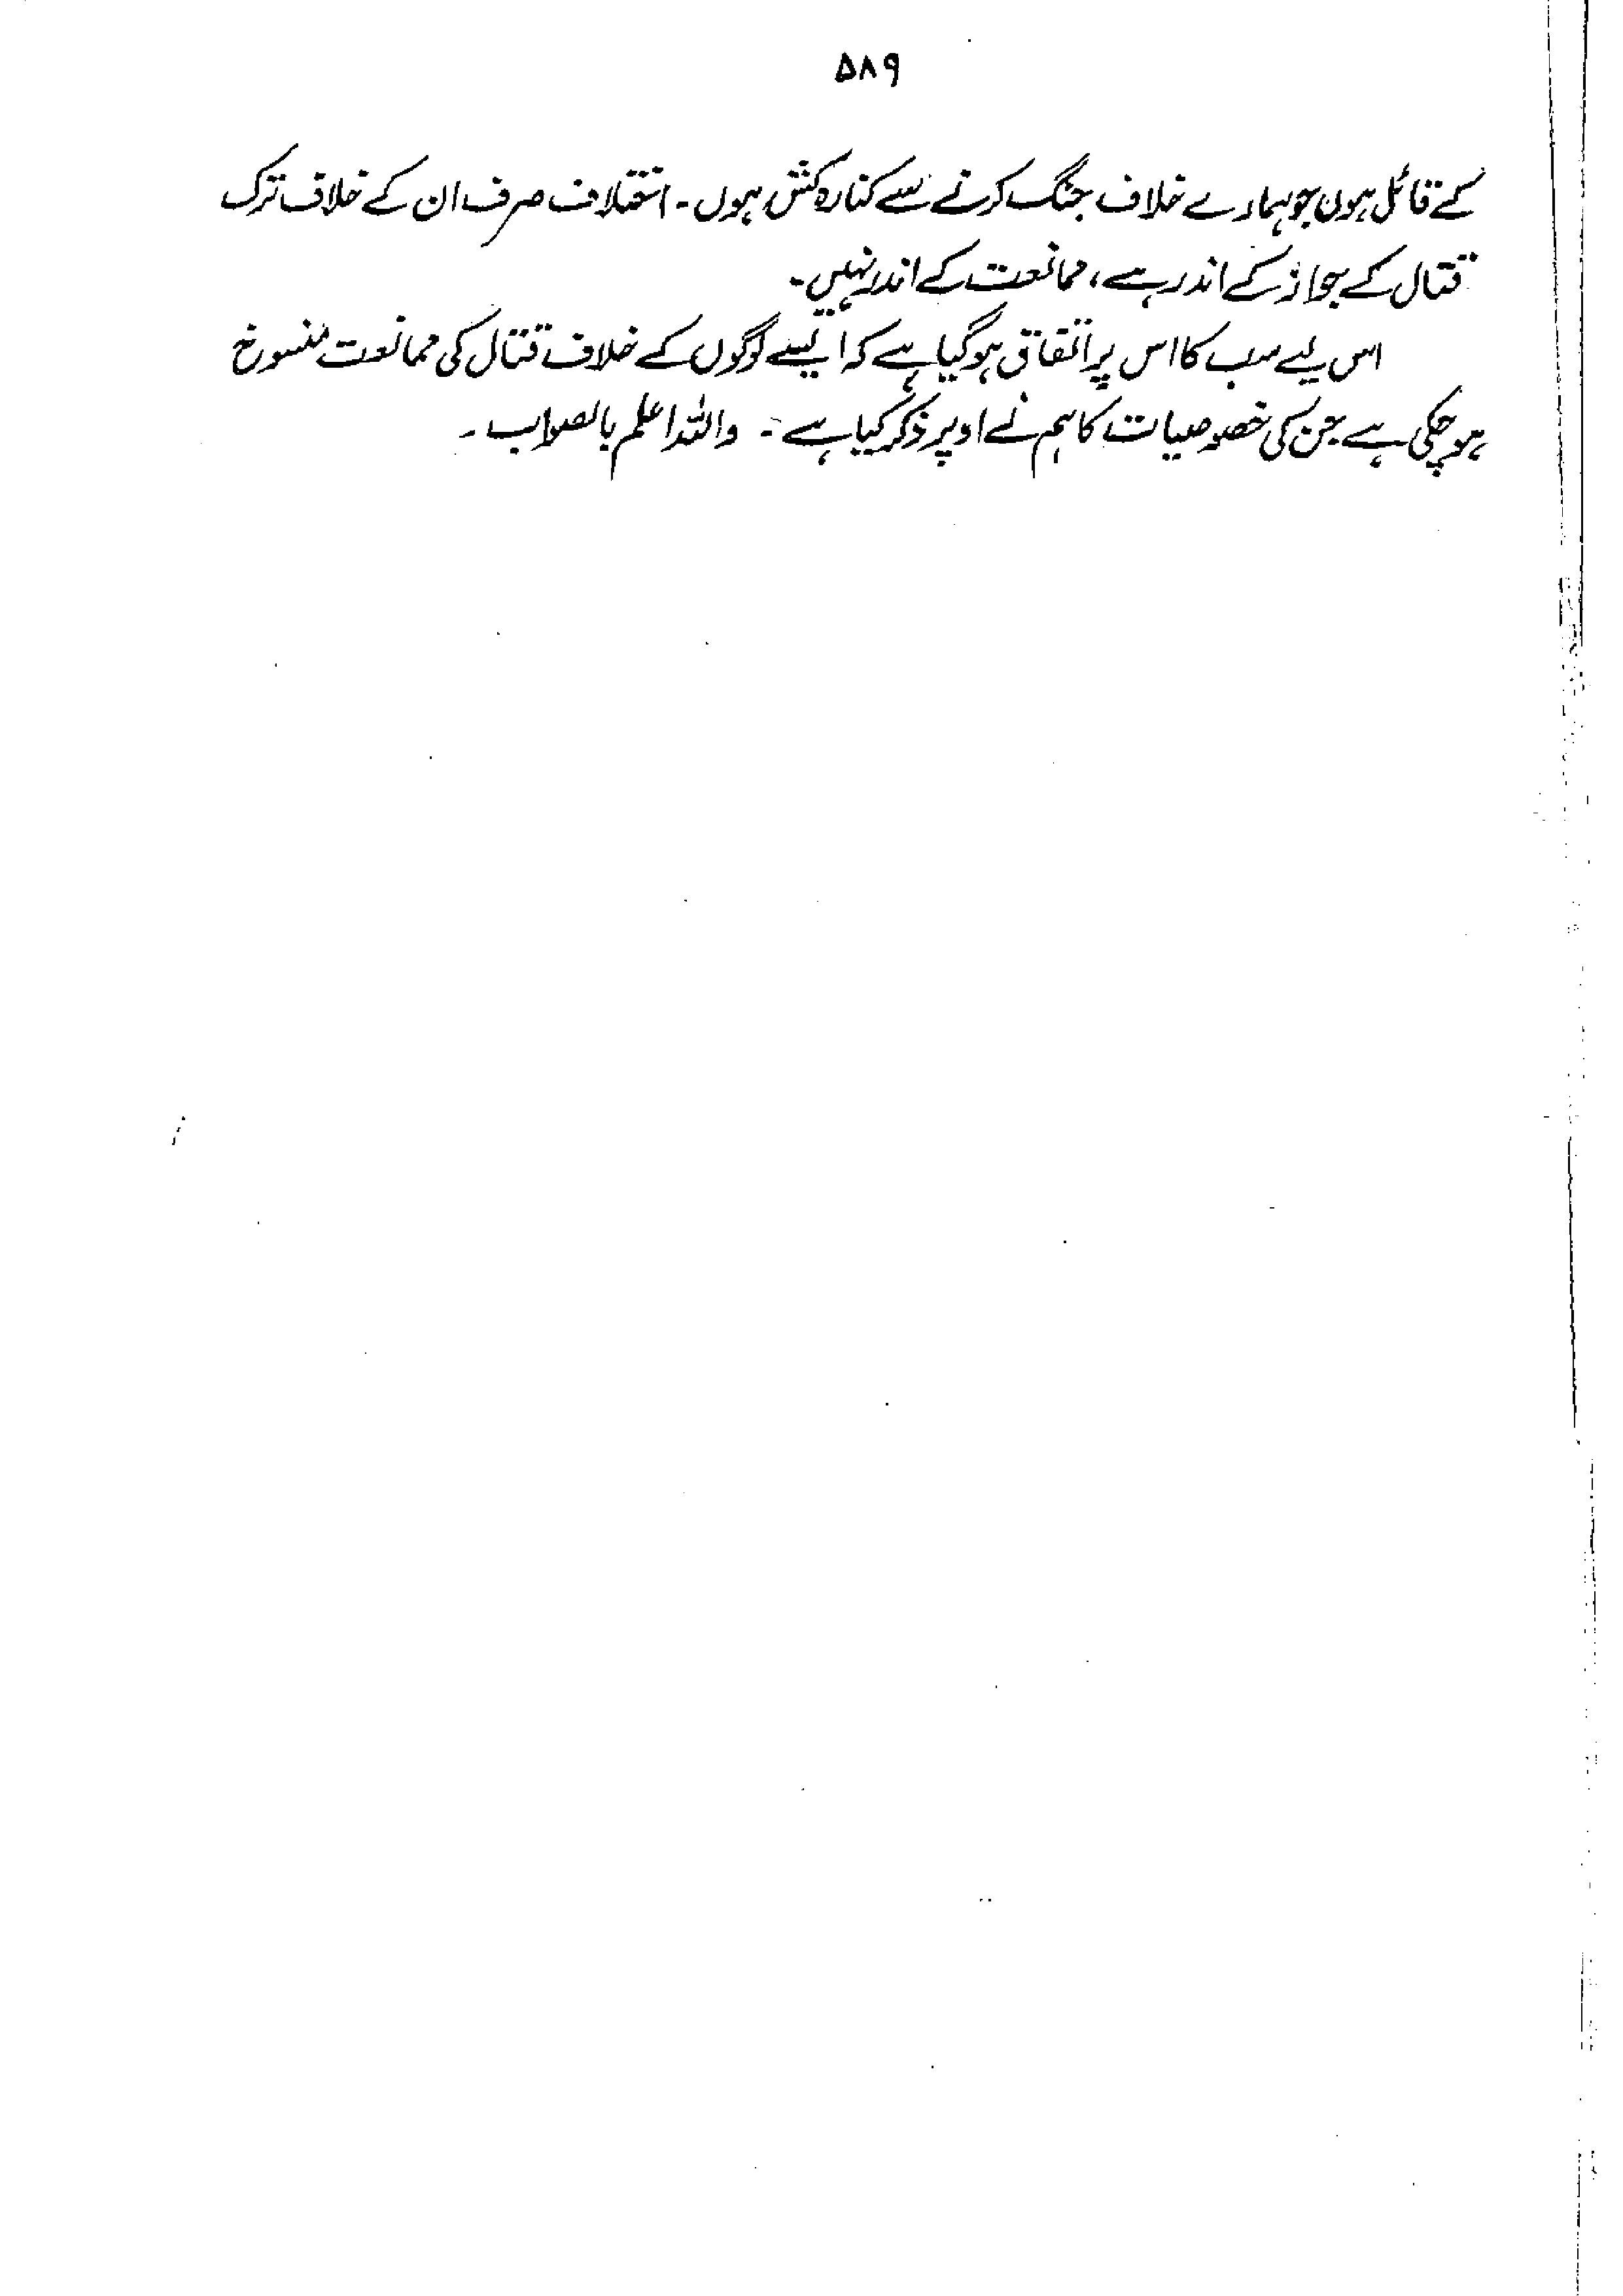 ۵۸۹
کے قائل ہوں جو ہمارے خلاف جنگ کرنے سے کنارہ کش ہوں۔ اختلاف صرف ان کے خلاف ترک
قتال کے جواز کے اندر ہے، ممانعت کے اندر نہیں۔
اس لیے سب کا اس پر اتفاق ہوگیا ہے کہ ایسے لوگوں کے خلاف قتال کی ممانعت منسوخ
ہوچکی ہے جن کی خصوصیات کا ہم نے اوپر ذکر کیا ہے۔ واللہ اعلم بالصواب۔